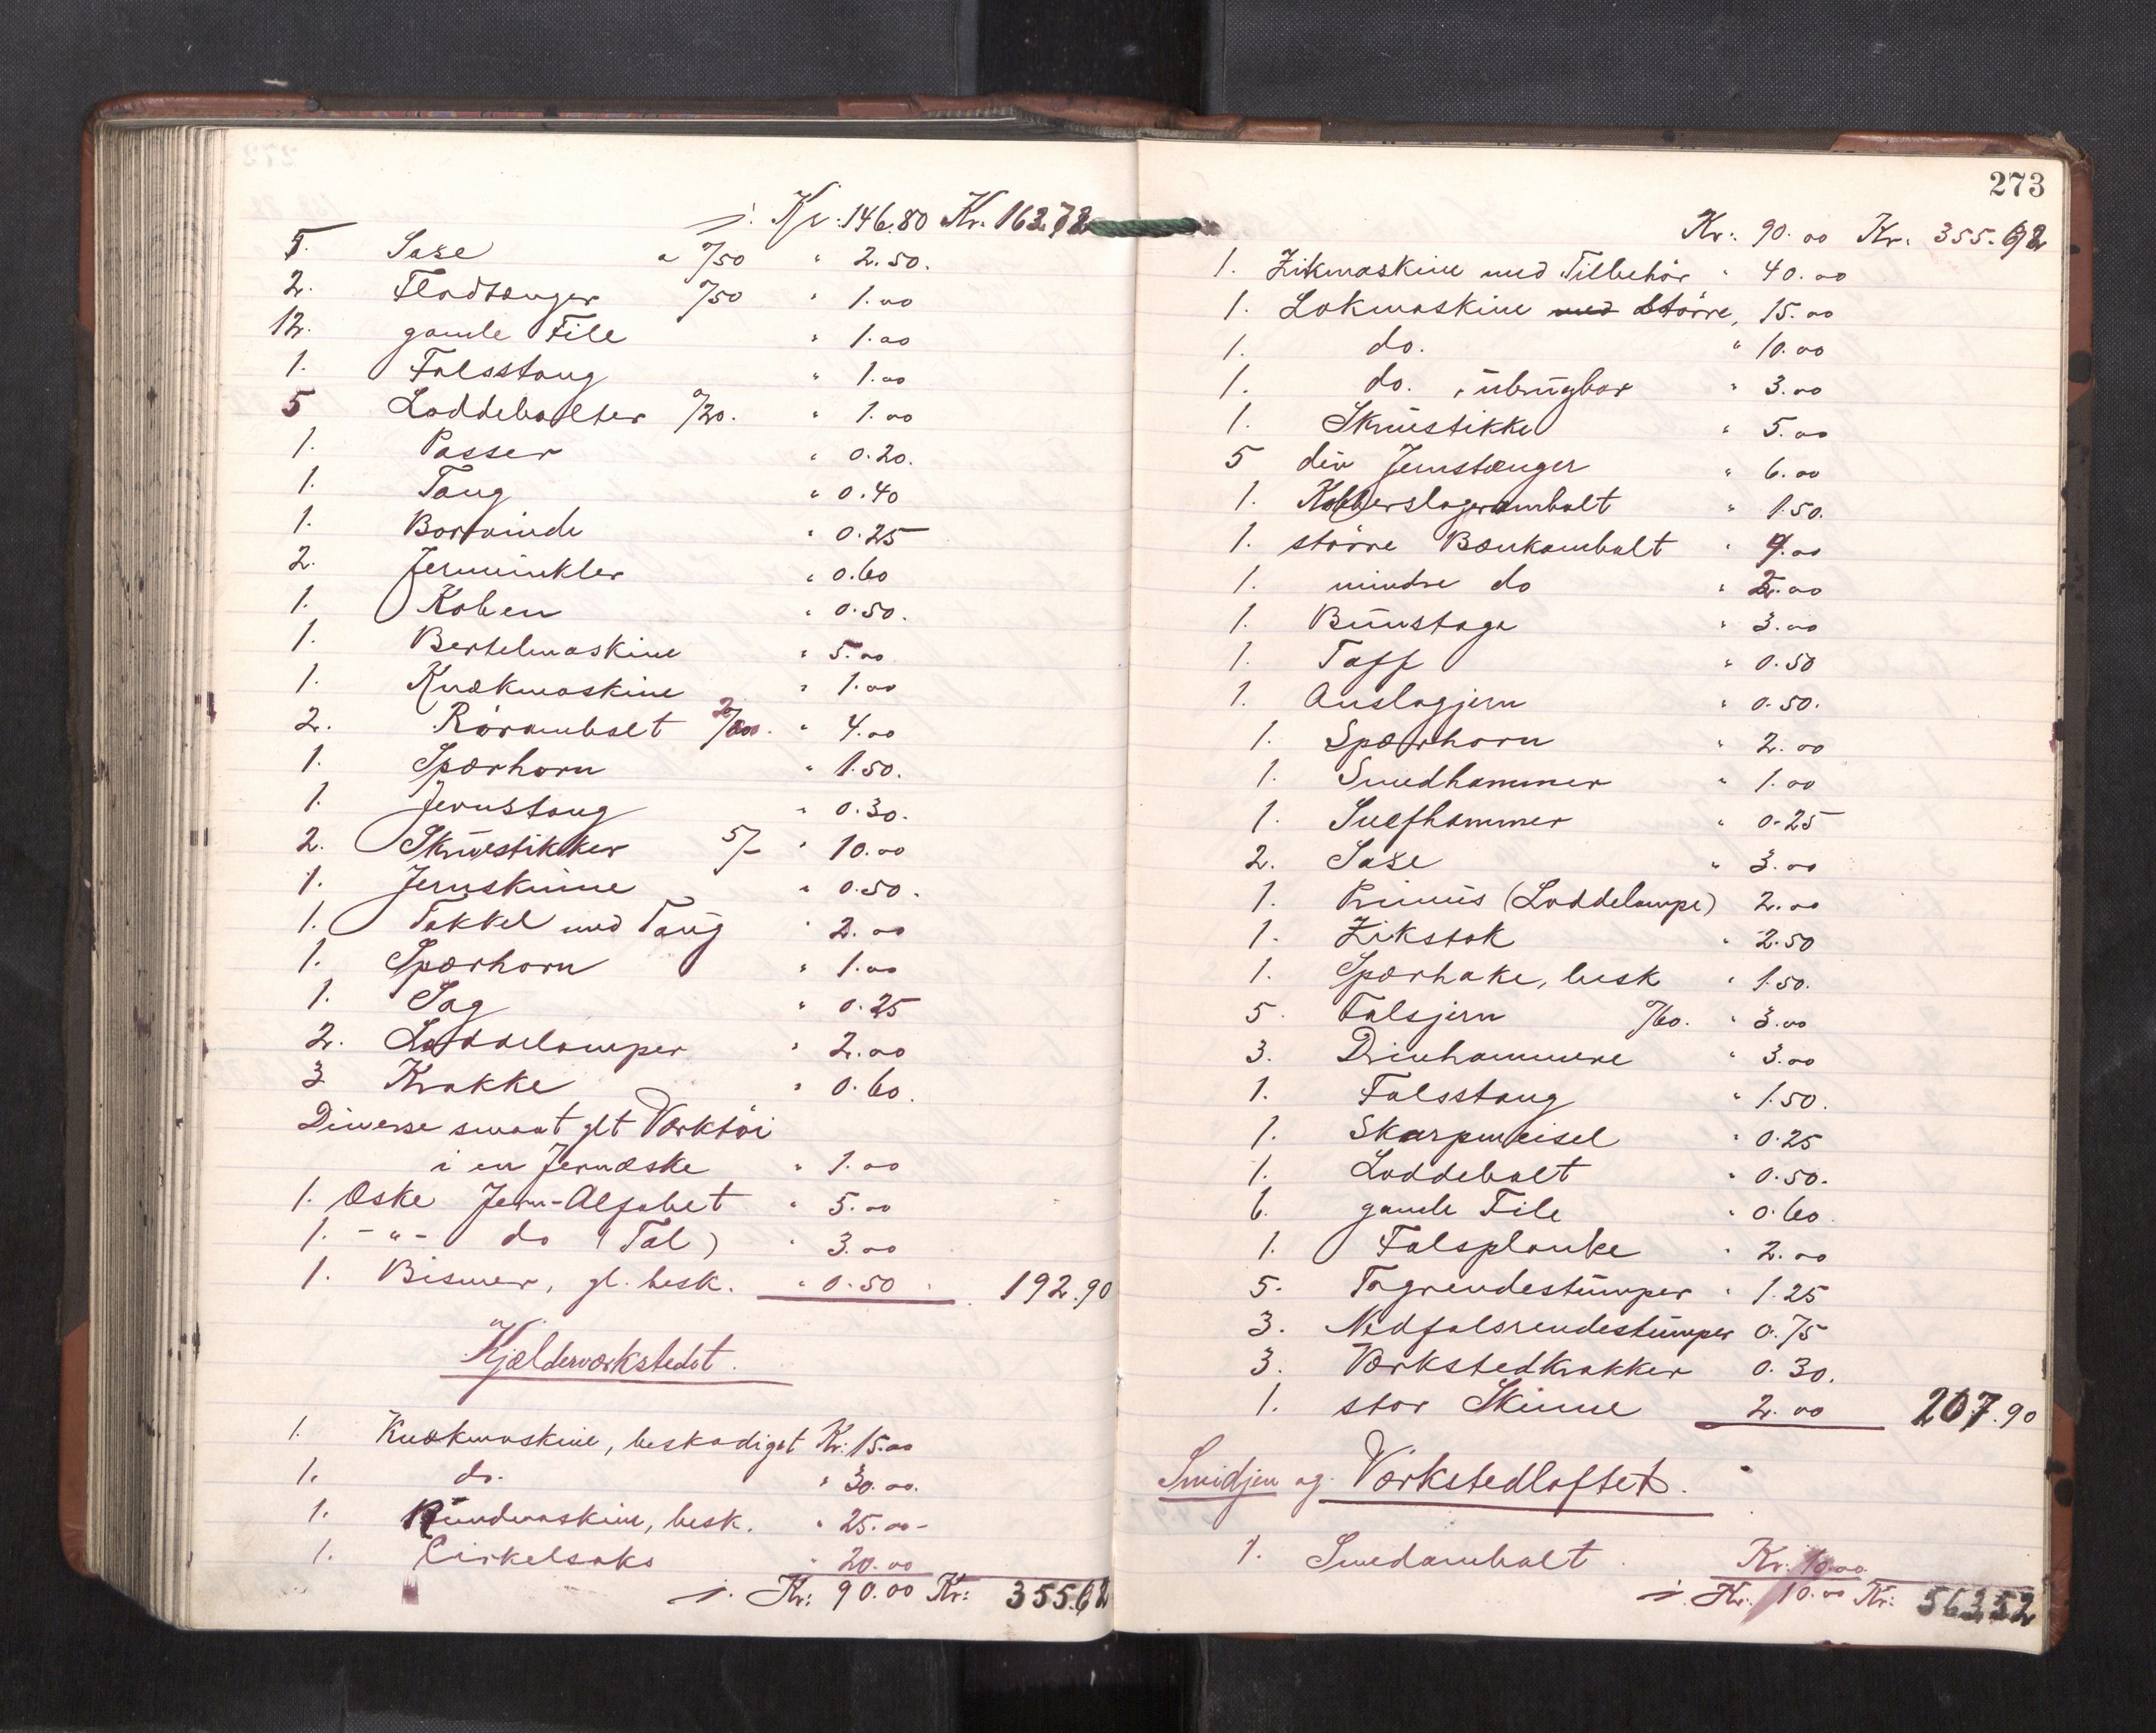 j. Kr. 146.80 Kr. 162.72
5. Saxe a %50 " 2.50.
2. Fladtænger %50 " 1.00
12. gamle File " 1.00
1. Falsstang " 1.00
5 Loddebolter %20. " 1.00
1. Passer " 0.20.
1. Tang " 0.40
1. Borvinde " 0.25
2. Jernvinkler " 0.60
1. Koben " 0.50.
1. Bertelmaskine " 5.00
1. Knækmaskine " 1.00
2. Rörambolt 2/00. " 4.00
1. Sparhorn " 1.50.
1. Jernstang " 0.30.
2. Skruestikker 5/- " 10.00
1. Jernskinne " 0.50.
1. Takkel med Taug " 2.00
1. Sparhorn " 1.00
1. Sag " 0.25
2. Loddelamper " 2.00
3 Krakke " 0.60.
Diverse smaat glt Værktöi
i en Jernæske " 1.00
1. Æske Jern-Alfabet " 5.00
1. - " - do (Tal) " 3.00
1. Bismer, gl. besk. " 0.50 192.90
Kjælderværkstedet.
1. Knækmaskine, beskadiget Kr: 15.00
1. do. " 30.00.
1. Rundmaskine, besk. " 25.00-
1. Cirkelsaks " 20.00
j. Kr: 90.00 Kr: 355.62
273
Kr: 90.00 Kr. 355.62
1. Zikmaskine med Tilbehör " 40.00
1. Lokmaskine med större, 15.00
1. do. " 10.00
1. do. , ubrugbar " 3.00
1. Skruestikke " 5.00
5 div Jernstænger " 6.00
1. Kobberslagerambolt " 1.50.
1. större Bænkambolt " 4.00
1. mindre do " 2.00
1. Bunstage " 3.00
1. Taff " 0.50
1. Anslagjern " 0.50.
1. Sparhorn " 2.00
1. Smedhammer " 1.00
1. Suefhammer " 0.25
2. Saxe " 3.00
1. Primus (Loddelampe) 2.00
1. Zikstok " 2.50
1. Sparhake, besk " 1.50.
5. Falsjern %60. " 3.00
3. Drivhammere " 3.00
1. Falsstang " 1.50.
1. Skarpmeisel " 0.25
1. Loddebolt " 0.50.
6. gamle File " 0.60
1. Falsplanke " 2.00
5. Tagrendestumper " 1.25
3. Nedfalsrendestumper 0.75
3. Værkstedkrakker 0.30.
1. stor Skinne 2.00 207.90
Smidjen og Værkstedloftet.
1. Smedambolt. Kr. 10.00
j. Kr. 10.00 Kr: 563.52